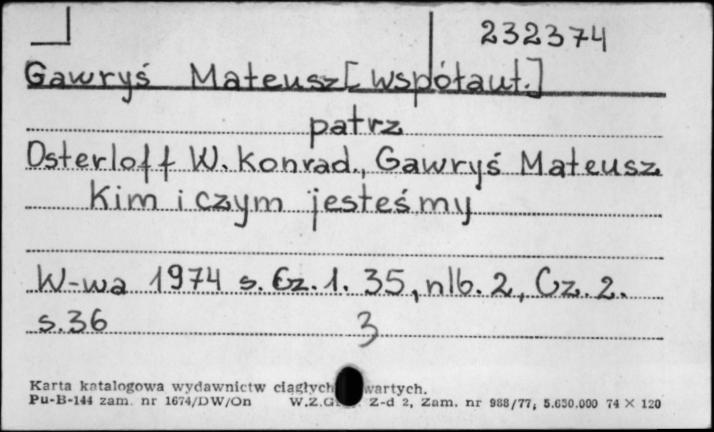 232374
Gawryś Mateusz [współaut.]
patrz
Osterloff W. Konrad., Gawryś Mateusz
Kim i czym jesteśmy
W-wa 1974 s. Cz. 1. 35, nlb. 2, Cz. 2.
s. 36 3
Karta katalogowa wydawnictw ciągłych wartych.
Pu-B-144 zam. nr 1674/DW/On W.Z.G. Z-d 2, Zam. nr 988/77, 5.650.000 74 × 120